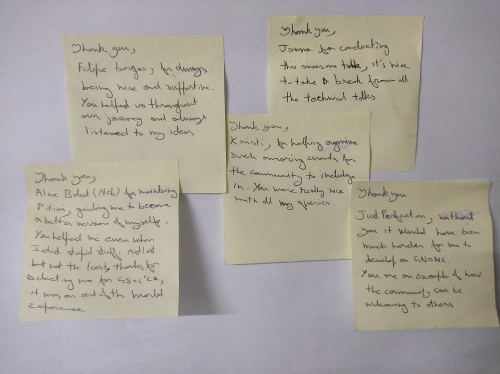 Thank you,
Felipe Borges, for always
being nice and supportive.
You helped us throughout
our journey and always
listened to my ideas
Thank you,
for conducting
this awesome talk, it's nice
to take a break from all
the technical talks
Thank you,
Kristi, for helping organize
such amazing events for
the community to indulge
in. You were really nice
with all my queries.
Thank you,
Alex (Mcb) for mentoring
Pitivi, guiding me to become
a better version of myself.
You helped me even when
I did stupid stuff. And last
but not the least, thanks for
selecting me for GSoC'22,
it was an out of the world
experience
Thank you
Just Perfection, without
you it would have been
much harder for me to
develop on GNOME.
You are an example of how
the community can be
welcoming to others